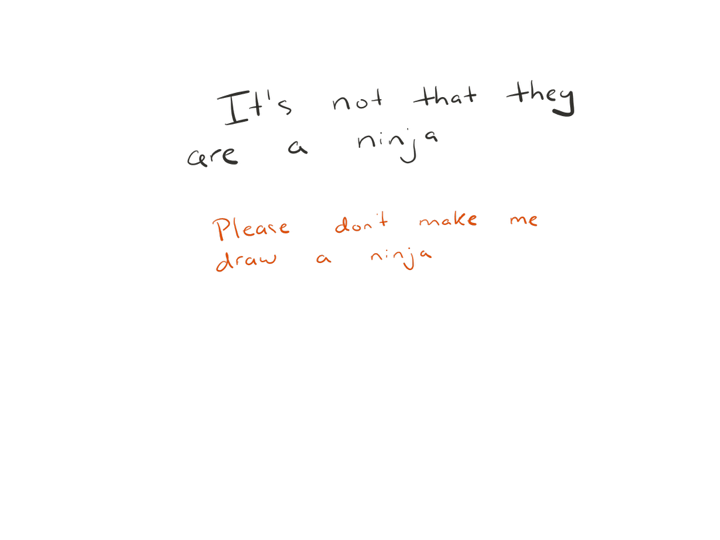 It's not that they
are a ninja
Please don't make me
draw a ninja